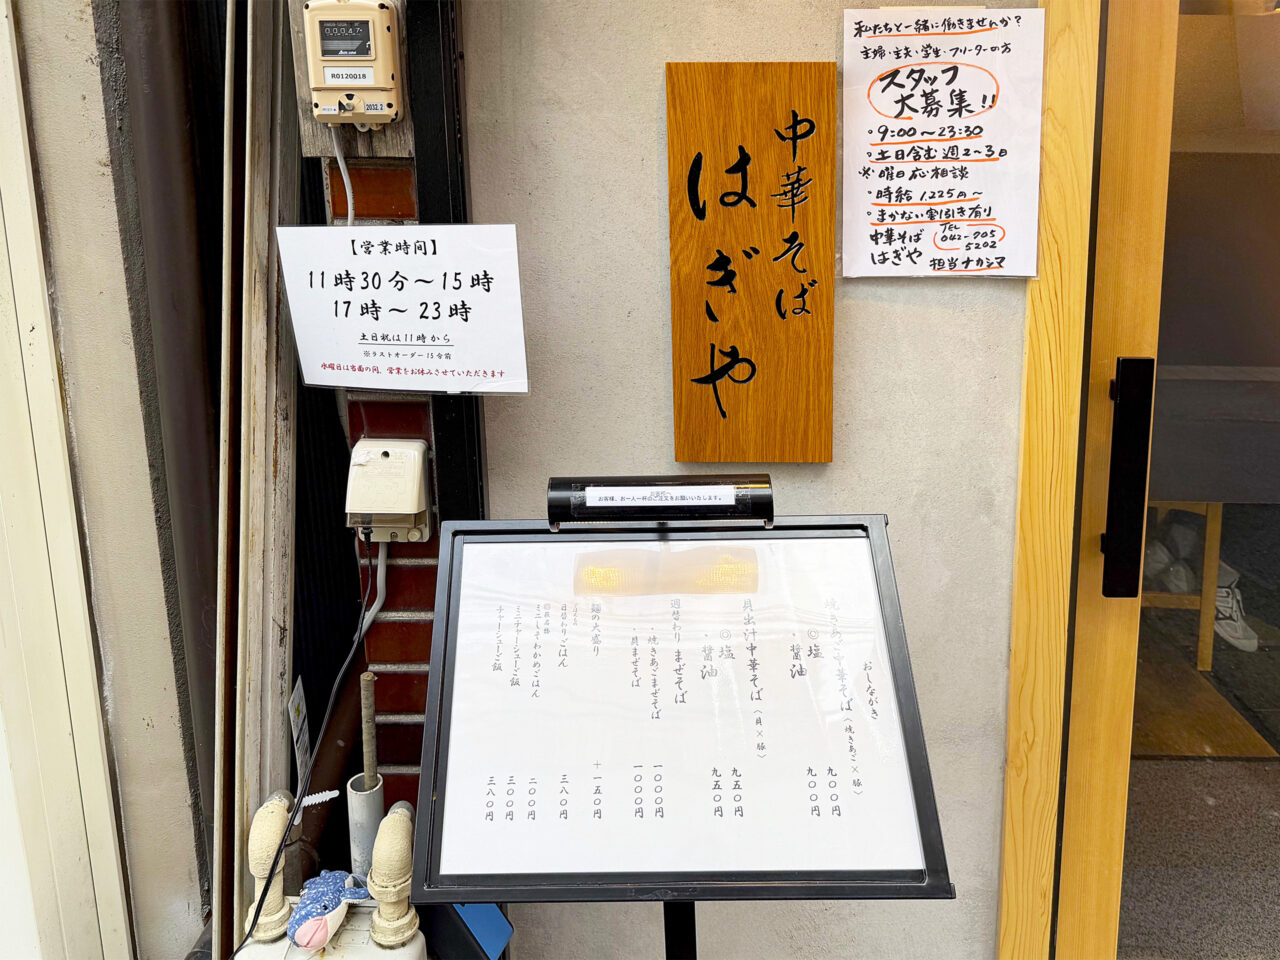 00047
R0120018
2032.2
【営業時間】
11時30分～15時
17時～23時
土日祝は11時から
※ラストオーダー15分前
水曜日は当面の間、営業をお休みさせていただきます
中華そば
はぎや
私たちと一緒に働きませんか?
主婦・主夫・学生・フリーターの方
スタッフ
大募集!!
・9:00～23:30
・土日含む週2～3日
※曜日応相談
・時給1,225円～
・まかない割引き有り
中華そば
はぎや
TEL
042-705
5202
担当ナカシマ
お客様へ
お客様、お一人一杯のご注文をお願いいたします。
おしながき
焼きあご中華そば（焼きあご×豚）
◎塩 九〇〇円
・醤油 九〇〇円
貝出汁中華そば（貝×豚）
◎塩 九五〇円
・醤油 九五〇円
週替わりまぜそば
・焼きあごまぜそば 一〇〇〇円
・貝まぜそば 一〇〇〇円
麺の大盛り ＋一五〇円
日替わりごはん 三八〇円
ミニしそわかめごはん 二〇〇円
ミニチャーシューご飯 三〇〇円
チャーシューご飯 三八〇円